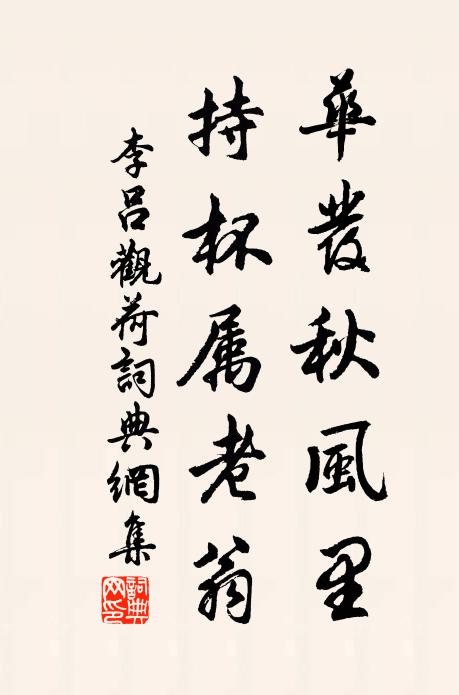 華發秋風里
持杯属老翁
李呂觀荷詞典網集
詞典网印